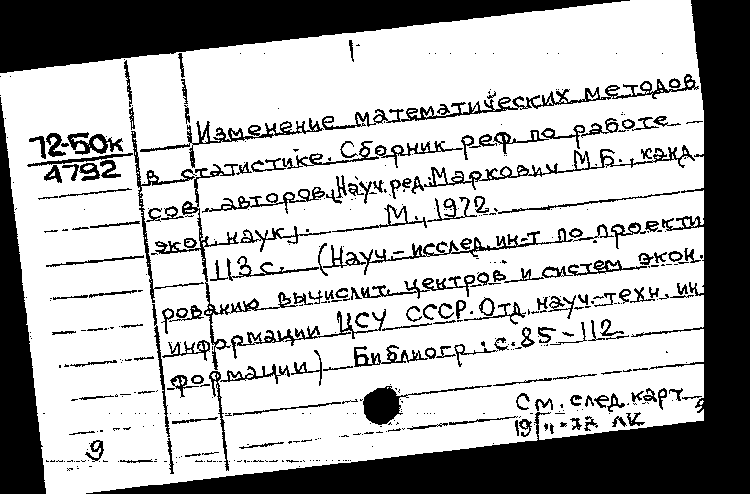 72-50к
4792
Изменение математических методов
в статистике. Сборник реф. по работе
сов. авторов. [Науч. ред. Маркович М.Б., канд.
экон. наук]. М., 1972.
113 с. (Науч.-исслед. ин-т по проекти
рованию вычислит. центров и систем экон.
информации ЦСУ СССР. Отд. науч.-техн. ин
формации) Библиогр.: с. 85-112.
См. след. карт.
19
ЛК
9